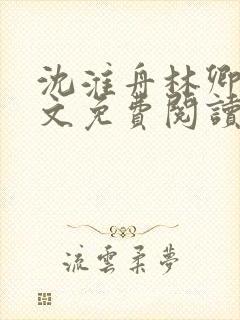 沈淮舟林卿
文免費閱讀
流雲柔夢